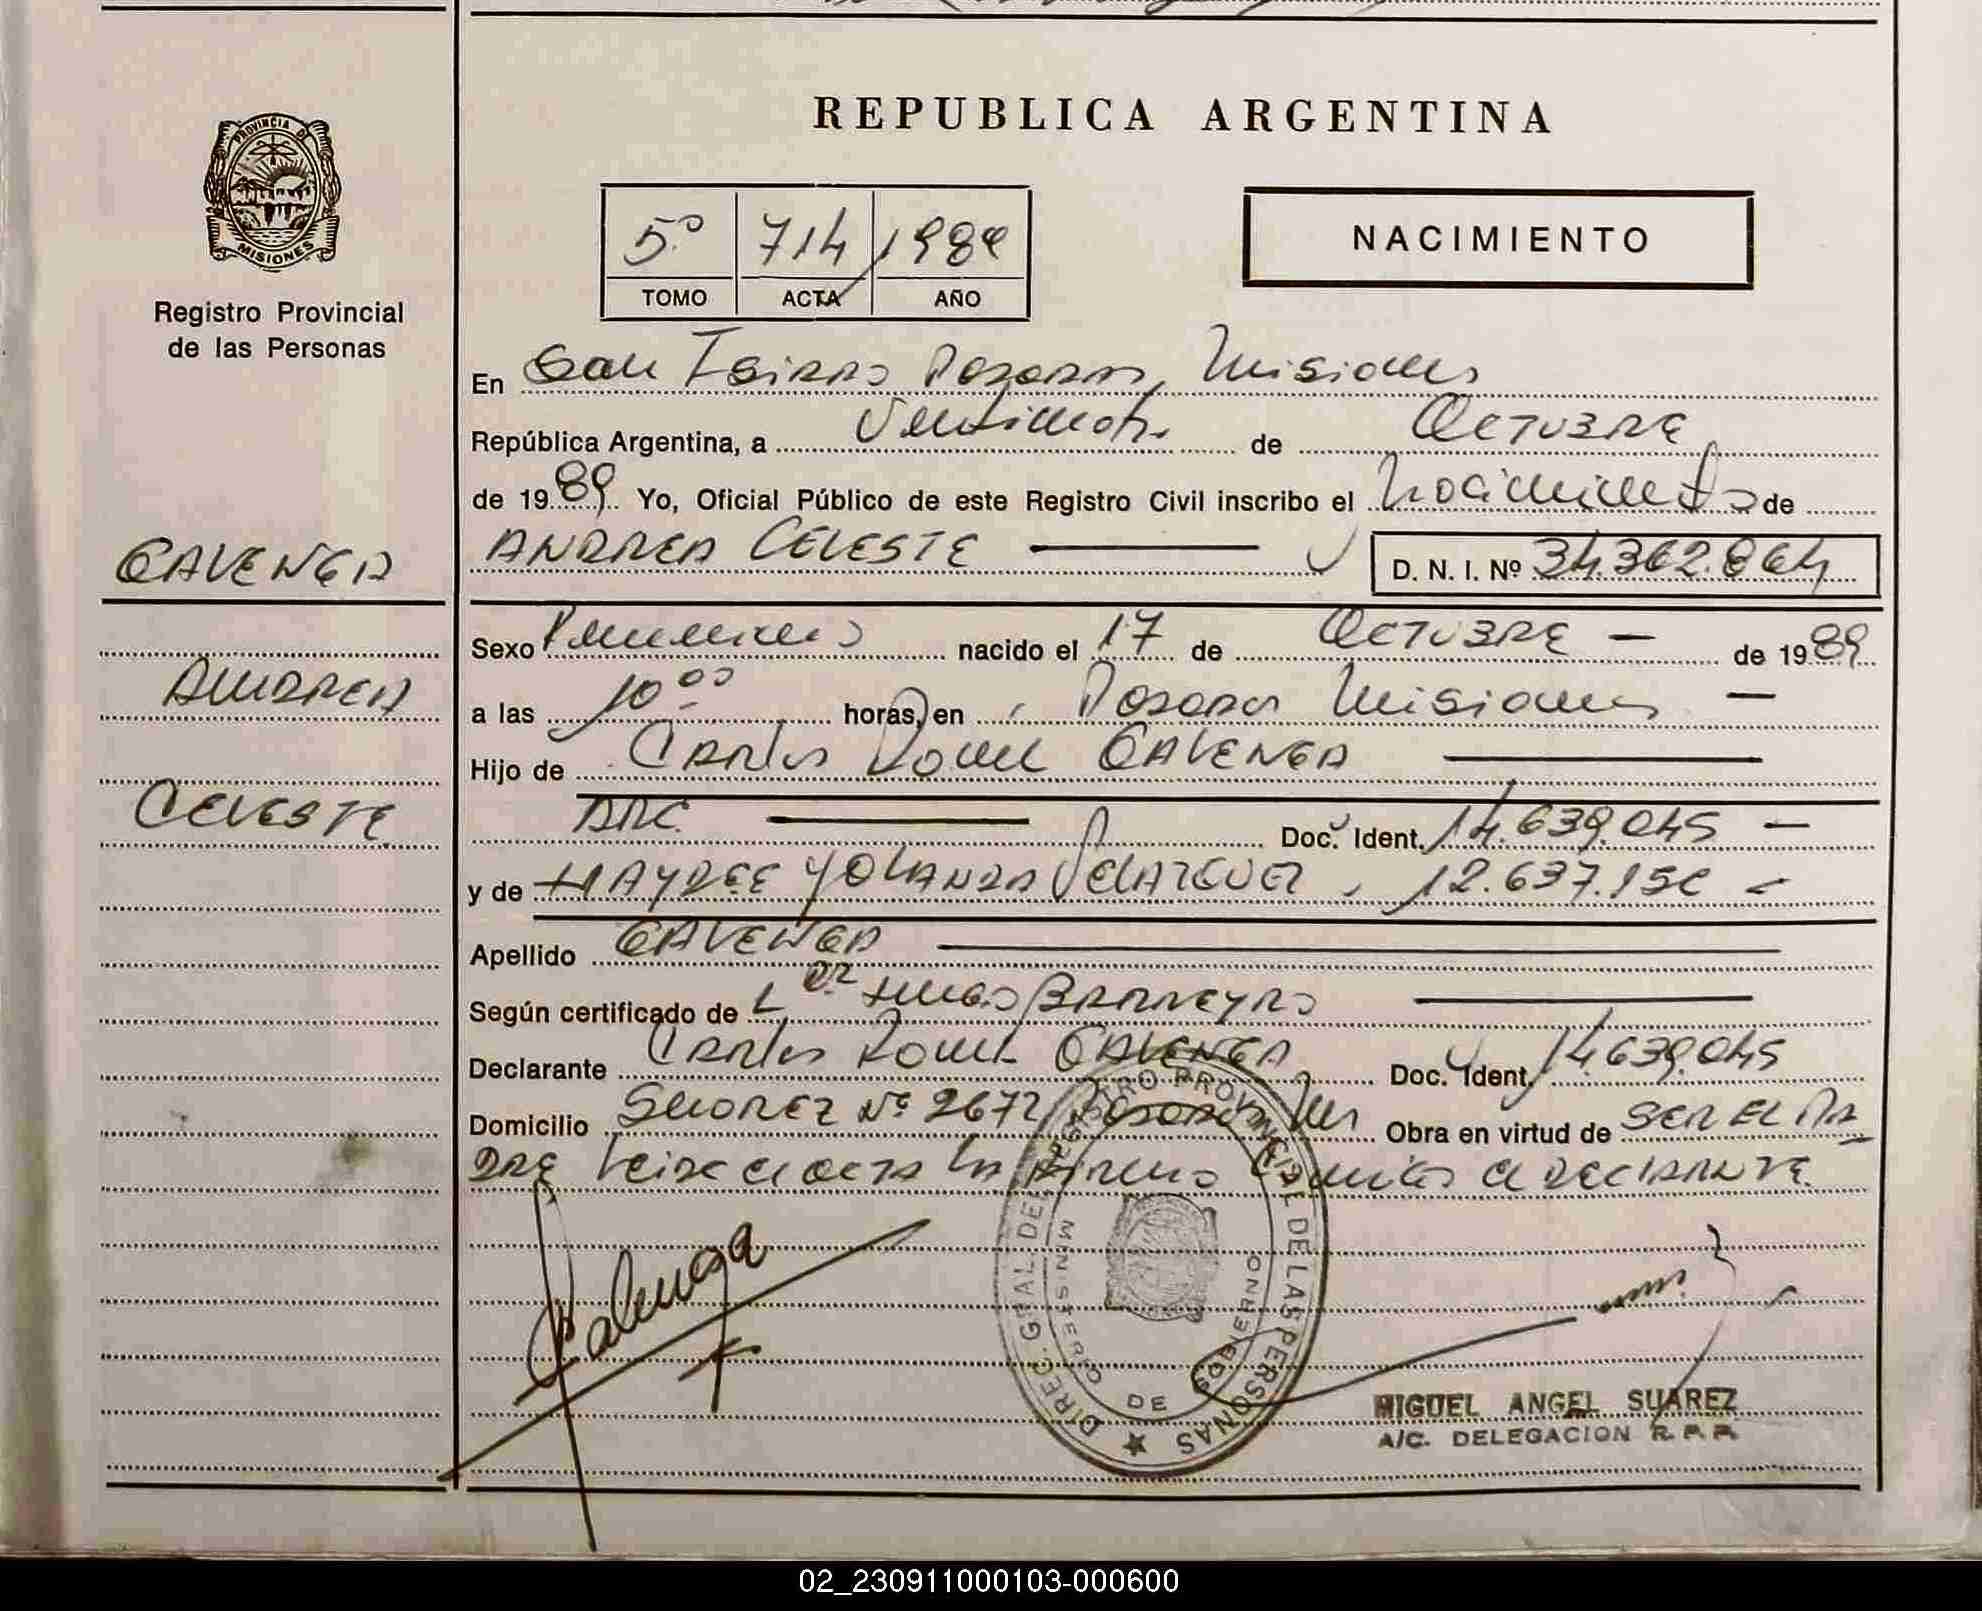 REPUBLICA ARGENTINA
PROVINCIA DE
MISIONES
Registro Provincial
de las Personas
5º 714 1989
TOMO ACTA AÑO
NACIMIENTO
En San Isidro Posadas, Misiones
República Argentina, a de OCTUBRE
de 1989 Yo, Oficial Público de este Registro Civil inscribo el Nacimiento de
GALENGA
ANDREA CELESTE
D. N. I. Nº 34.362.864
Sexo Femenino nacido el 17 de OCTUBRE — de 1989
ANDREA
a las 10 00 horas, en Posadas Misiones —
Hijo de Carlos GALENGA
CELESTE
Doc. Ident. 14.639.045 —
y de HAYDEE YOLANDA VELAZQUEZ, 12.637.15
Apellido GALENGA
Según certificado de BARREYRO
Declarante Carlos GALENGA Doc. Ident. 14.639.045
Domicilio Suarez Nº 2672 Posadas Mnes Obra en virtud de SER EL PA
DRE Leida el acta la firma el DECLARANTE.
Galenga
DIREC. GRAL DEL REGISTRO PROVINCIAL DE LAS PERSONAS
MINISTERIO DE GOBIERNO
MIGUEL ANGEL SUAREZ
A/C. DELEGACION R. P. P.
02_230911000103-000600